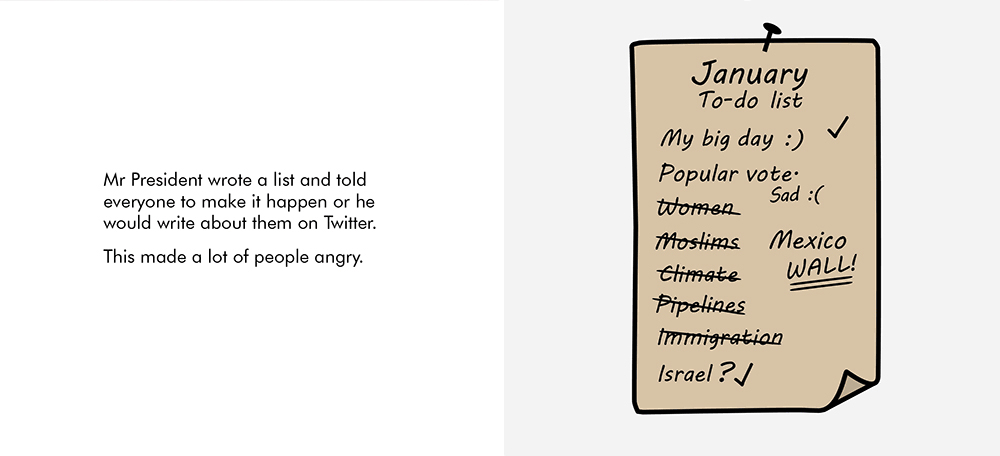 Mr President wrote a list and told
everyone to make it happen or he
would write about them on Twitter.
This made a lot of people angry.
January
To-do list
My big day :) ✓
Popular vote.
Sad :(
Women
Moslims
Mexico
WALL!
Climate
Pipelines
Immigration
Israel ?✓